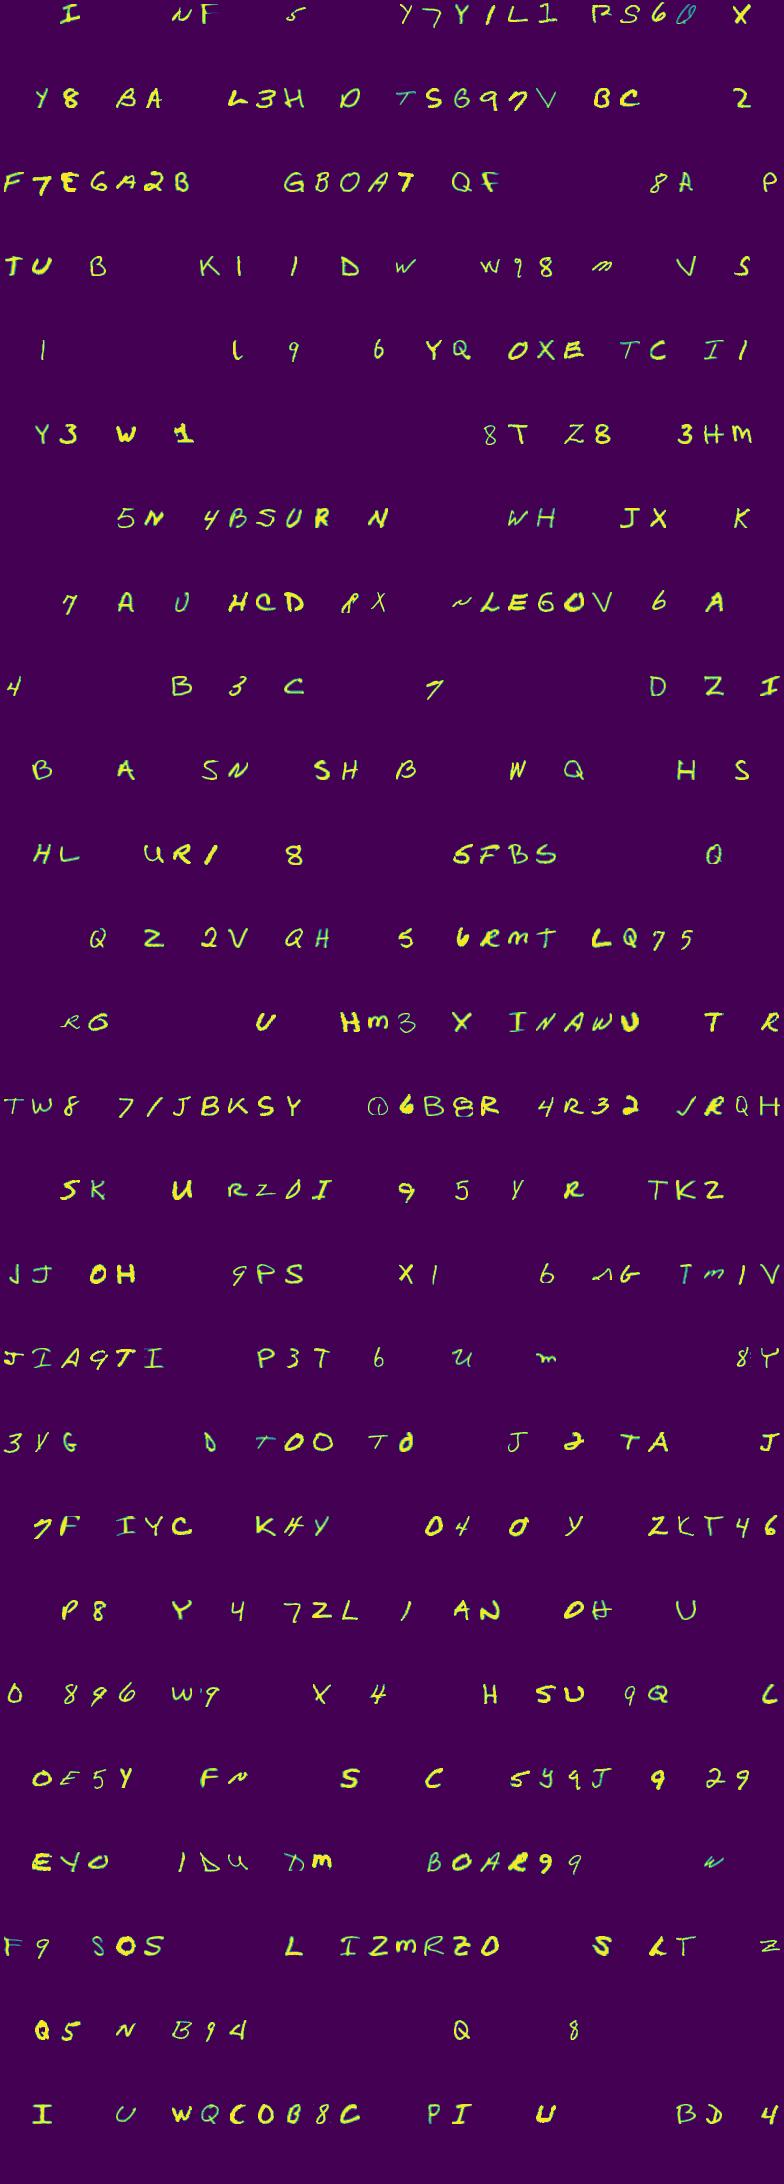 I NF 5 Y7Y1L1 RS60 X
Y8 BA L3H D TSG97V BC 2
F7E6A2B GBOAT QF 8A P
TU B K1 1 D W W98 M V S
1 L 9 6 YQ OXE TC I1
Y3 W 1 8T Z8 3HM
5N 4BSUR N WH JX K
7 A U HCD 8X NLEGOV 6 A
4 B 3 C 7 D Z I
B A 5N SH B W Q H S
HL UR1 8 5FBS Q
Q Z 2V QH 5 6RMT LQ75
RG U HM3 X INAWU T R
TW8 7/JBKSY 06B8R 4R32 JRQH
5K U RZDI 9 5 Y R TKZ
JJ OH 9PS X1 6 NG TM1V
JIA9TI P3T 6 U M 8Y
3YG D TOO TO J 2 TA J
7F IYC KHY 04 0 Y ZKT46
P8 Y 4 7ZL 1 AN OH U
0 896 W9 X 4 H 5U 9Q L
OE5Y FN S C 5Y9J 9 29
EYO 1DU XM BOAR99 W
F9 SOS L IZMRZO S LT Z
Q5 N B94 Q 8
I U WQCOB8C PI U BD 4